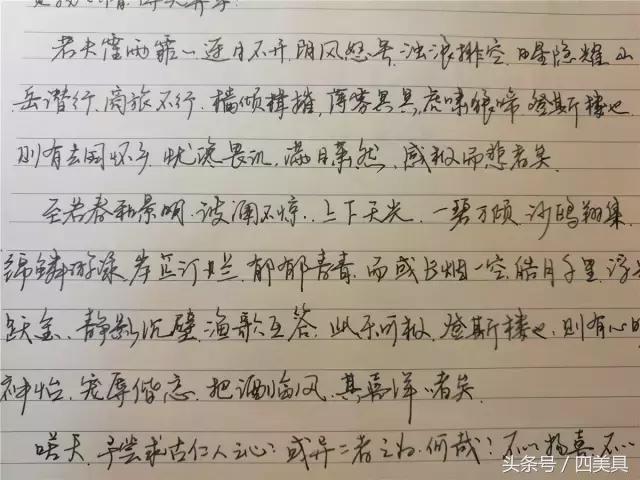 若夫霪雨霏霏,连月不开,阴风怒号,浊浪排空,日星隐耀,山
岳潜行,商旅不行,樯倾楫摧,薄雾冥冥,虎啸猿啼,登斯楼也,
则有去国怀乡,忧谗畏讥,满目萧然,感极而悲者矣.
至若春和景明,波澜不惊,上下天光,一碧万顷,沙鸥翔集,
锦鳞游泳,岸芷汀兰,郁郁青青,而或长烟一空,皓月千里,浮
跃金,静影沉璧,渔歌互答,此乐何极,登斯楼也,则有心旷
神怡,宠辱偕忘,把酒临风,其喜洋洋者矣.
嗟夫,予尝求古仁人之心,或异二者之为,何哉?不以物喜不以
头条号/四美具